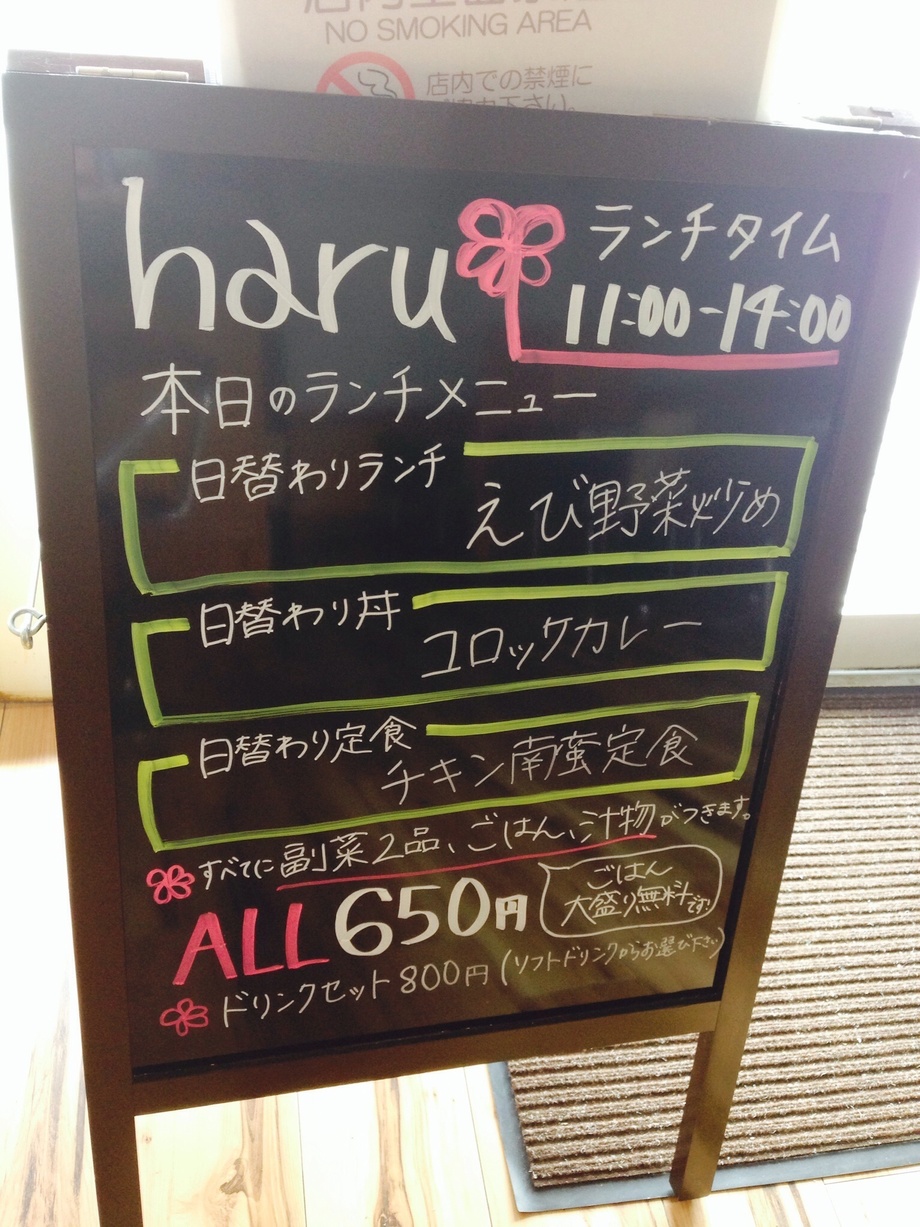 NO SMOKING AREA
店内での禁煙に
haru
ランチタイム
11:00-14:00
本日のランチメニュー
日替わりランチ
えび野菜炒め
日替わり丼
コロッケカレー
日替わり定食
チキン南蛮定食
すべてに副菜2品、ごはん、汁物がつきます。
ALL 650円
ごはん
大盛り無料です!
ドリンクセット 800円 (ソフトドリンクからお選び下さい)